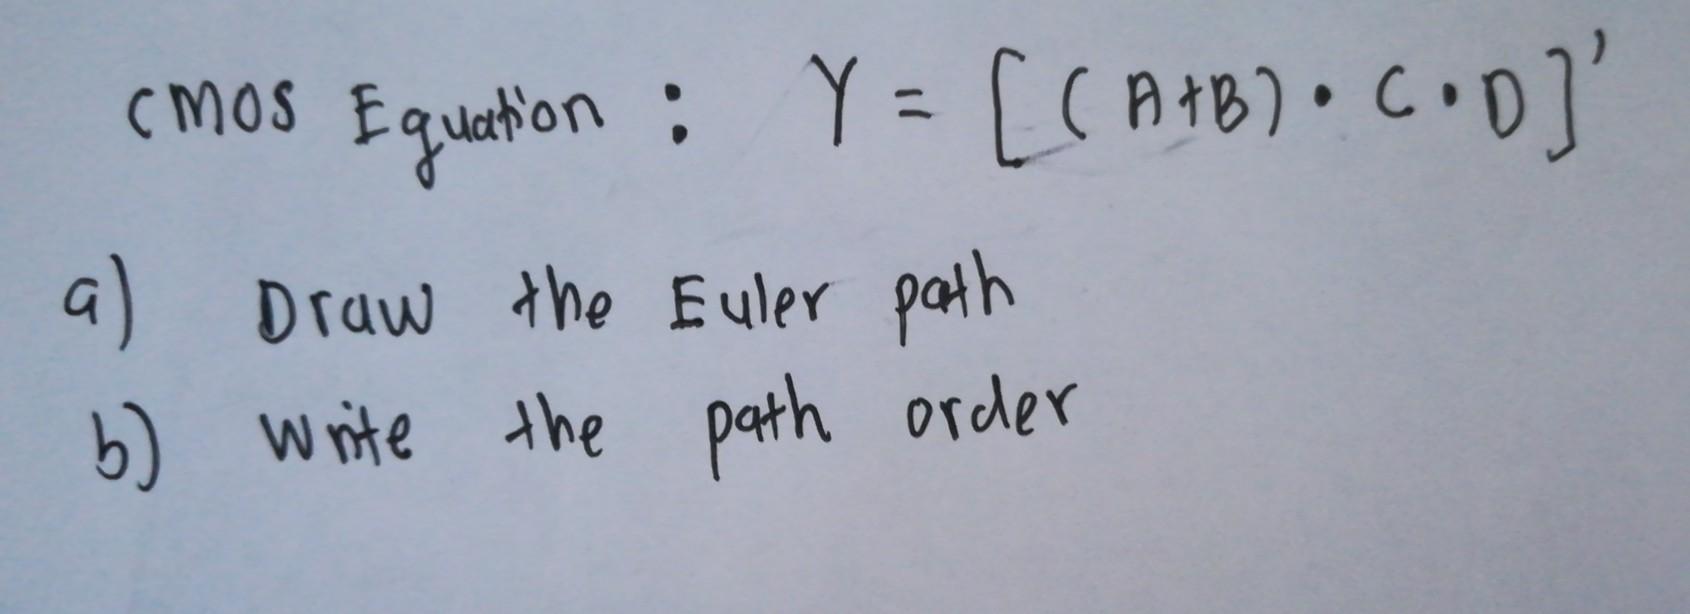 CMOS Equation : Y = [(A+B) • C • D]'
a) Draw the Euler path
b) Write the path order